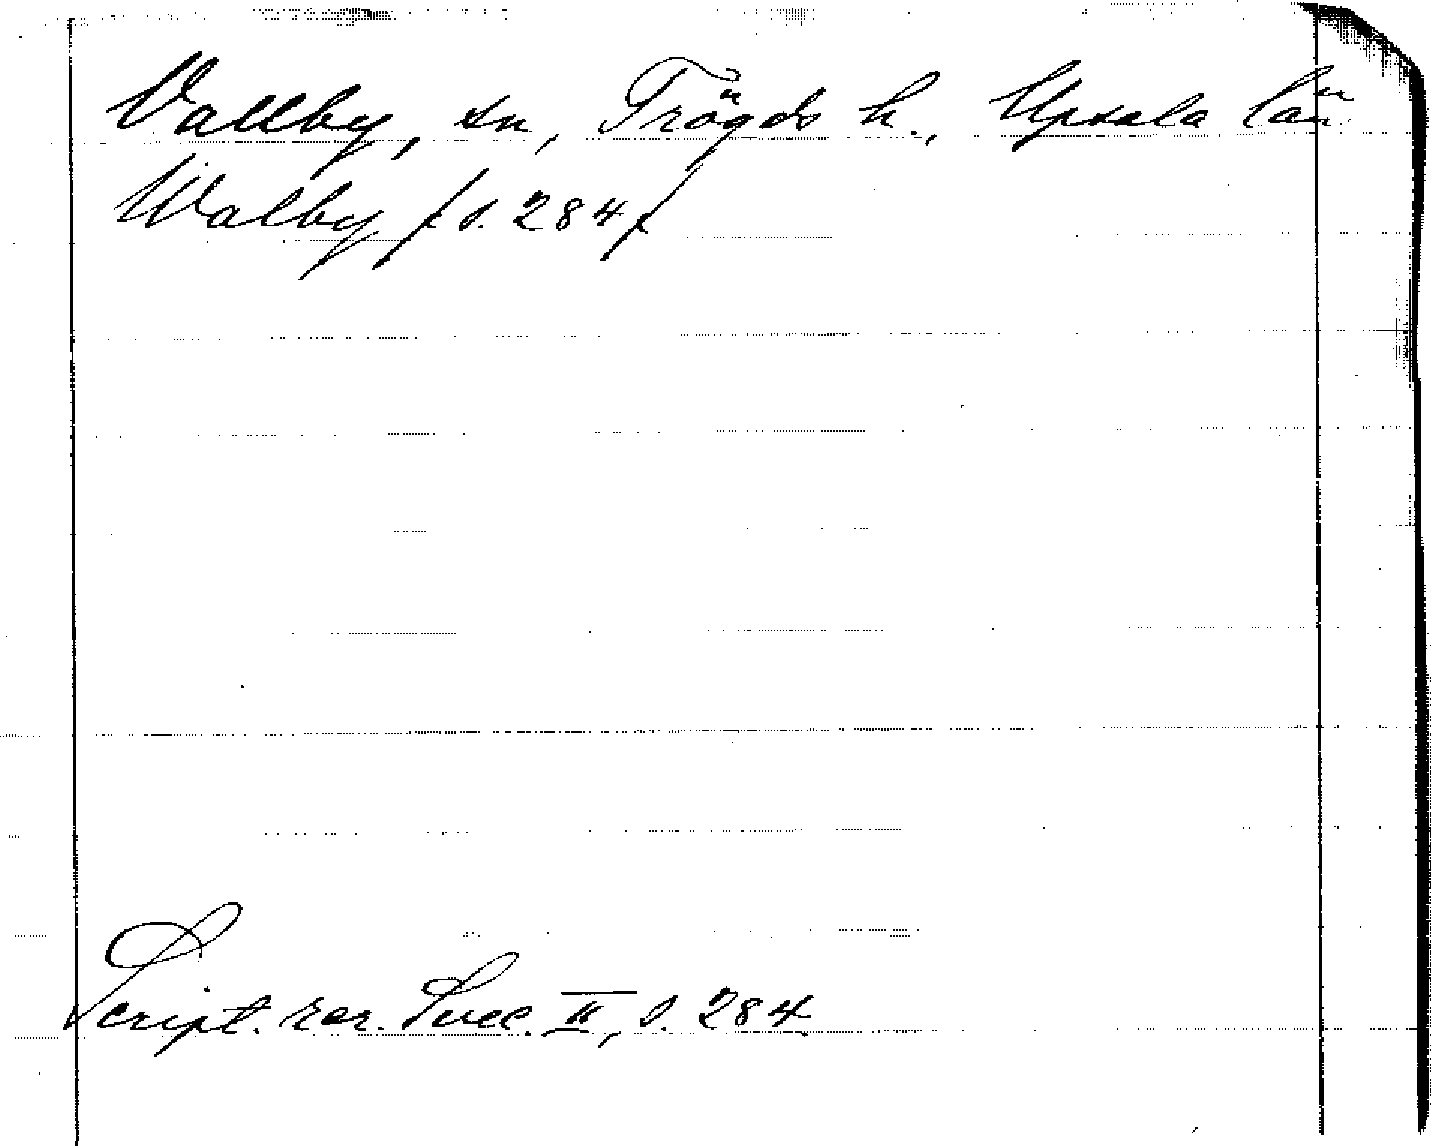 Vallby, sn, Trögds h., Upsala län
Walby /s. 284/
Script. rer. Svec. II, s. 284